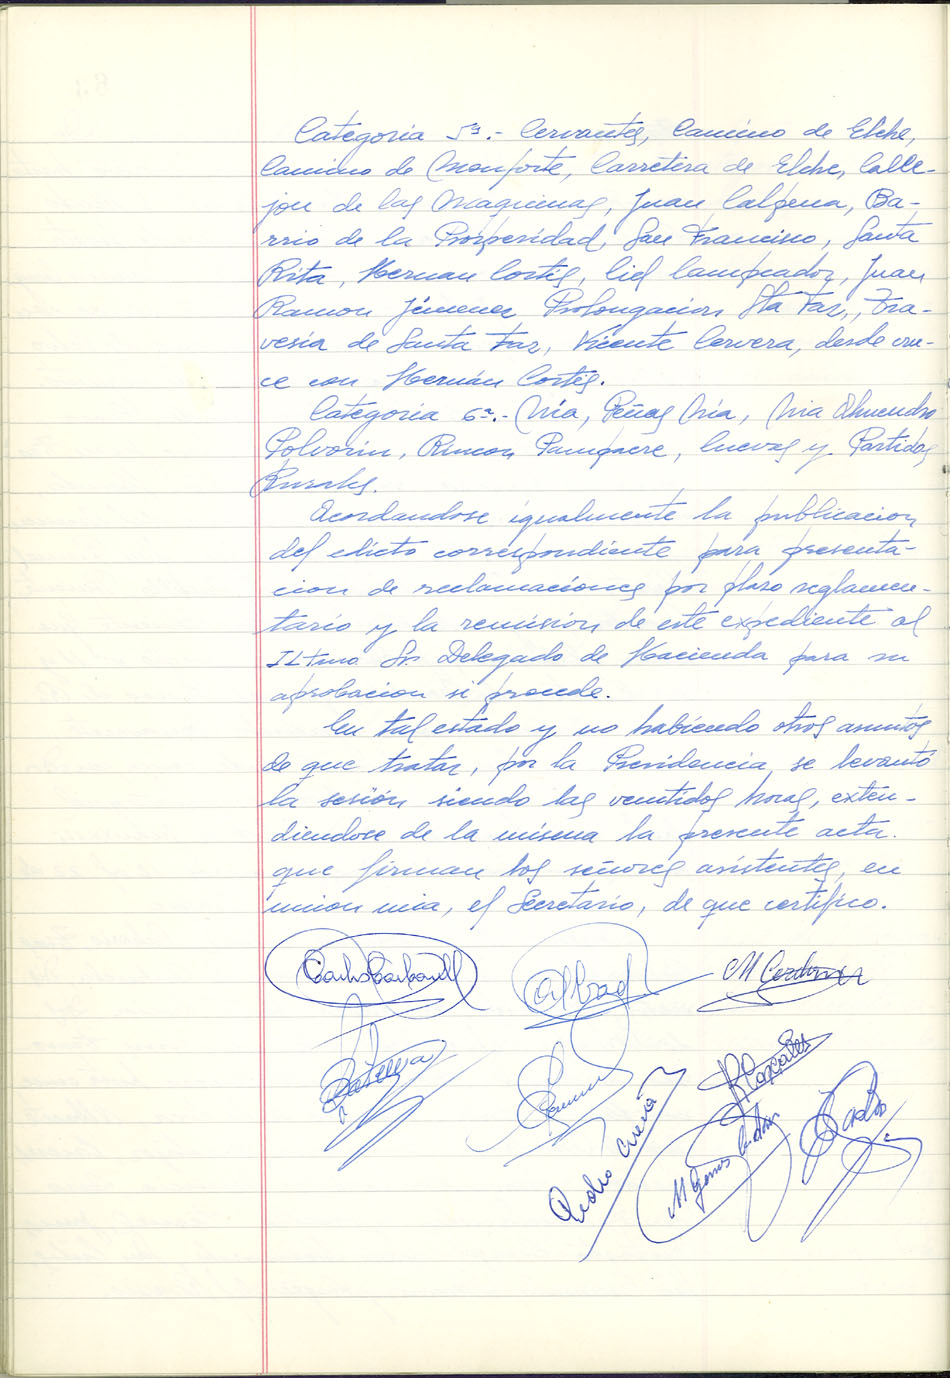 Categoria 5ª.- Cervantes, Camino de Elche,
Camino de Monforte, Carretera de Elche, Calle-
jon de las Maquinas, Juan Calpena, Ba-
rrio de la Prosperidad, San Francisco, Santa
Rita, Hernan Cortés, Cid Campeador, Juan
Ramon Jimenez Prolongacion Sta Faz, Tra-
vesia de Santa Faz, Vicente Cervera, desde cru-
ce con Hernán Cortés.
Categoria 6ª.- Mia, Peñas Mia,
Polvorin, Rincon, Cuevas y Partidos
Rurales.
Acordandose igualmente la publicacion
del edicto correspondiente para presenta-
cion de reclamaciones por plazo reglamen-
tario y la remision de este expediente al
Iltmo Sr. Delegado de Hacienda para su
aprobacion si procede.
En tal estado y no habiendo otros asuntos
de que tratar, por la Presidencia se levantó
la sesión siendo las ventidos horas, exten-
diendose de la misma la presente acta
que firman los señores asistentes, en
union mia, el Secretario, de que certifico.
Carlos Carbonell
Abad
M Cerdan
Pedro Cuenca